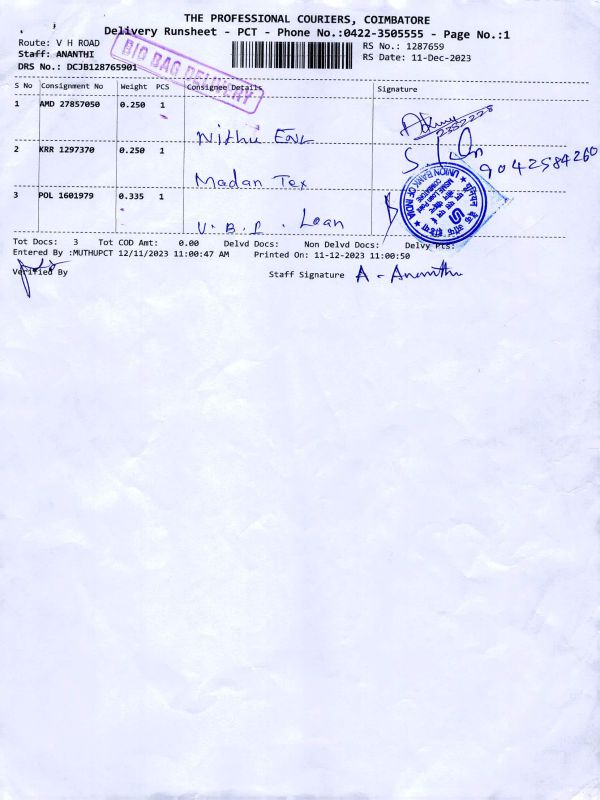 THE PROFESSIONAL COURIERS, COIMBATORE
Delivery Runsheet - PCT - Phone No.:0422-3505555 - Page No.:1
Route: V H ROAD
RS No.: 1287659
Staff: ANANTHI
RS Date: 11-Dec-2023
DRS No.: DCJB128765901
BIG BAG DELIVERY
S No Consignment No Weight PCS Consignee Details Signature
1 AMD 27857050 0.250 1
Nithu Enc
2 KRR 1297370 0.250 1
9042584260
Madan Tex
3 POL 1601979 0.335 1
U.B.I. Loan
UNION BANK OF INDIA
COIMBATORE
Tot Docs: 3 Tot COD Amt: 0.00 Delvd Docs: Non Delvd Docs: Delvy Pts:
Entered By :MUTHUPCT 12/11/2023 11:00:47 AM Printed On: 11-12-2023 11:00:50
Verified By Staff Signature A - Ananthi